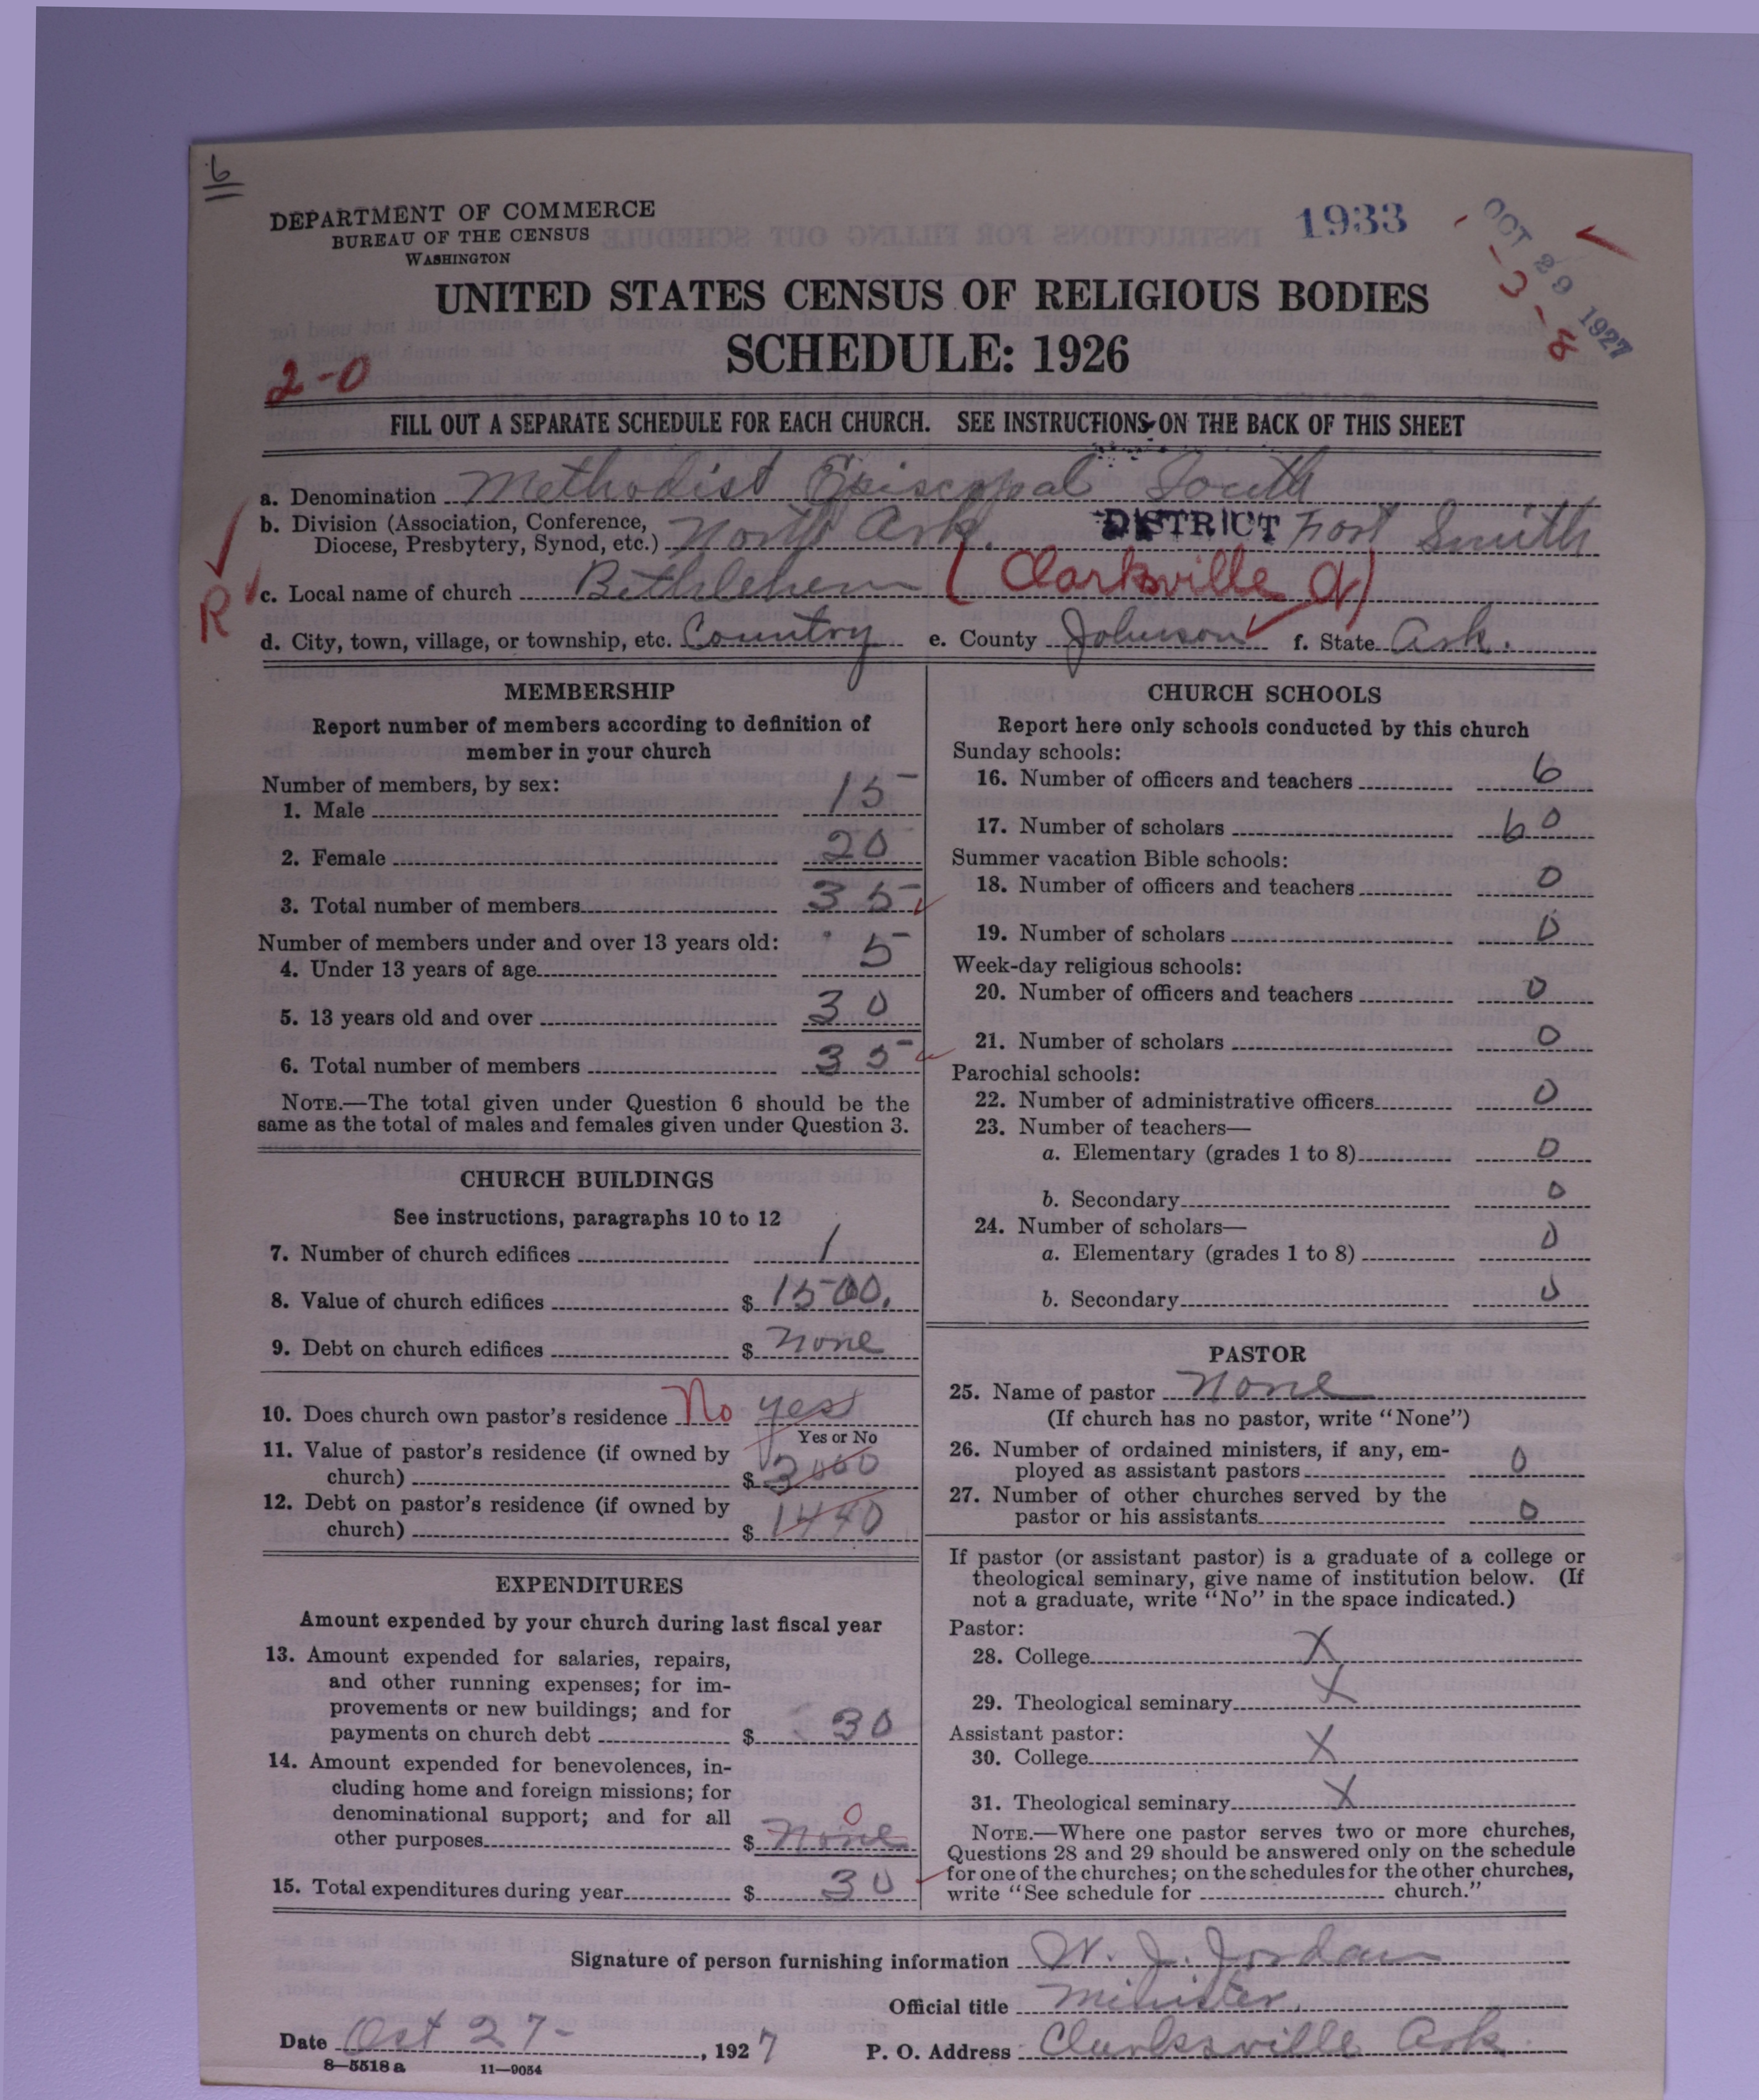 6
DEPARTMENT OF COMMERCE
BUREAU OF THE CENSUS
WASHINGTON
1933
OCT 29 1927
3-8
UNITED STATES CENSUS OF RELIGIOUS BODIES
SCHEDULE: 1926
2-0
FILL OUT A SEPARATE SCHEDULE FOR EACH CHURCH. SEE INSTRUCTIONS ON THE BACK OF THIS SHEET
a. Denomination Methodist Episcopal South
b. Division (Association, Conference,
Diocese, Presbytery, Synod, etc.) North Ark. DISTRICT Fort Smith
R c. Local name of church Bethlehem (Clarksville
d. City, town, village, or township, etc. Country e. County Johnson f. State Ark.
MEMBERSHIP
Report number of members according to definition of
member in your church
Number of members, by sex:
1. Male 15
2. Female 20
3. Total number of members 35
Number of members under and over 13 years old:
4. Under 13 years of age 5
5. 13 years old and over 30
6. Total number of members 35
NOTE.—The total given under Question 6 should be the
same as the total of males and females given under Question 3.
CHURCH BUILDINGS
See instructions, paragraphs 10 to 12
7. Number of church edifices 1
8. Value of church edifices $ 1500.
9. Debt on church edifices $ none
10. Does church own pastor's residence No yes
Yes or No
11. Value of pastor's residence (if owned by
church) $ 3000
12. Debt on pastor's residence (if owned by
church) $ 1440
EXPENDITURES
Amount expended by your church during last fiscal year
13. Amount expended for salaries, repairs,
and other running expenses; for im-
provements or new buildings; and for
payments on church debt $ 30
14. Amount expended for benevolences, in-
cluding home and foreign missions; for
denominational support; and for all
other purposes $ none 0
15. Total expenditures during year $ 30
CHURCH SCHOOLS
Report here only schools conducted by this church
Sunday schools:
16. Number of officers and teachers 6
17. Number of scholars 60
Summer vacation Bible schools:
18. Number of officers and teachers 0
19. Number of scholars 0
Week-day religious schools:
20. Number of officers and teachers 0
21. Number of scholars 0
Parochial schools:
22. Number of administrative officers 0
23. Number of teachers—
a. Elementary (grades 1 to 8) 0
b. Secondary 0
24. Number of scholars—
a. Elementary (grades 1 to 8) 0
b. Secondary 0
PASTOR
25. Name of pastor None
(If church has no pastor, write "None")
26. Number of ordained ministers, if any, em-
ployed as assistant pastors 0
27. Number of other churches served by the
pastor or his assistants 0
If pastor (or assistant pastor) is a graduate of a college or
theological seminary, give name of institution below. (If
not a graduate, write "No" in the space indicated.)
Pastor:
28. College X
29. Theological seminary X
Assistant pastor:
30. College X
31. Theological seminary X
NOTE.—Where one pastor serves two or more churches,
Questions 28 and 29 should be answered only on the schedule
for one of the churches; on the schedules for the other churches,
write "See schedule for church."
Signature of person furnishing information W. J. Jordan
Official title Minister.
Date Oct 27-, 1927 P. O. Address Clarksville Ark.
8—5518 a 11—9054